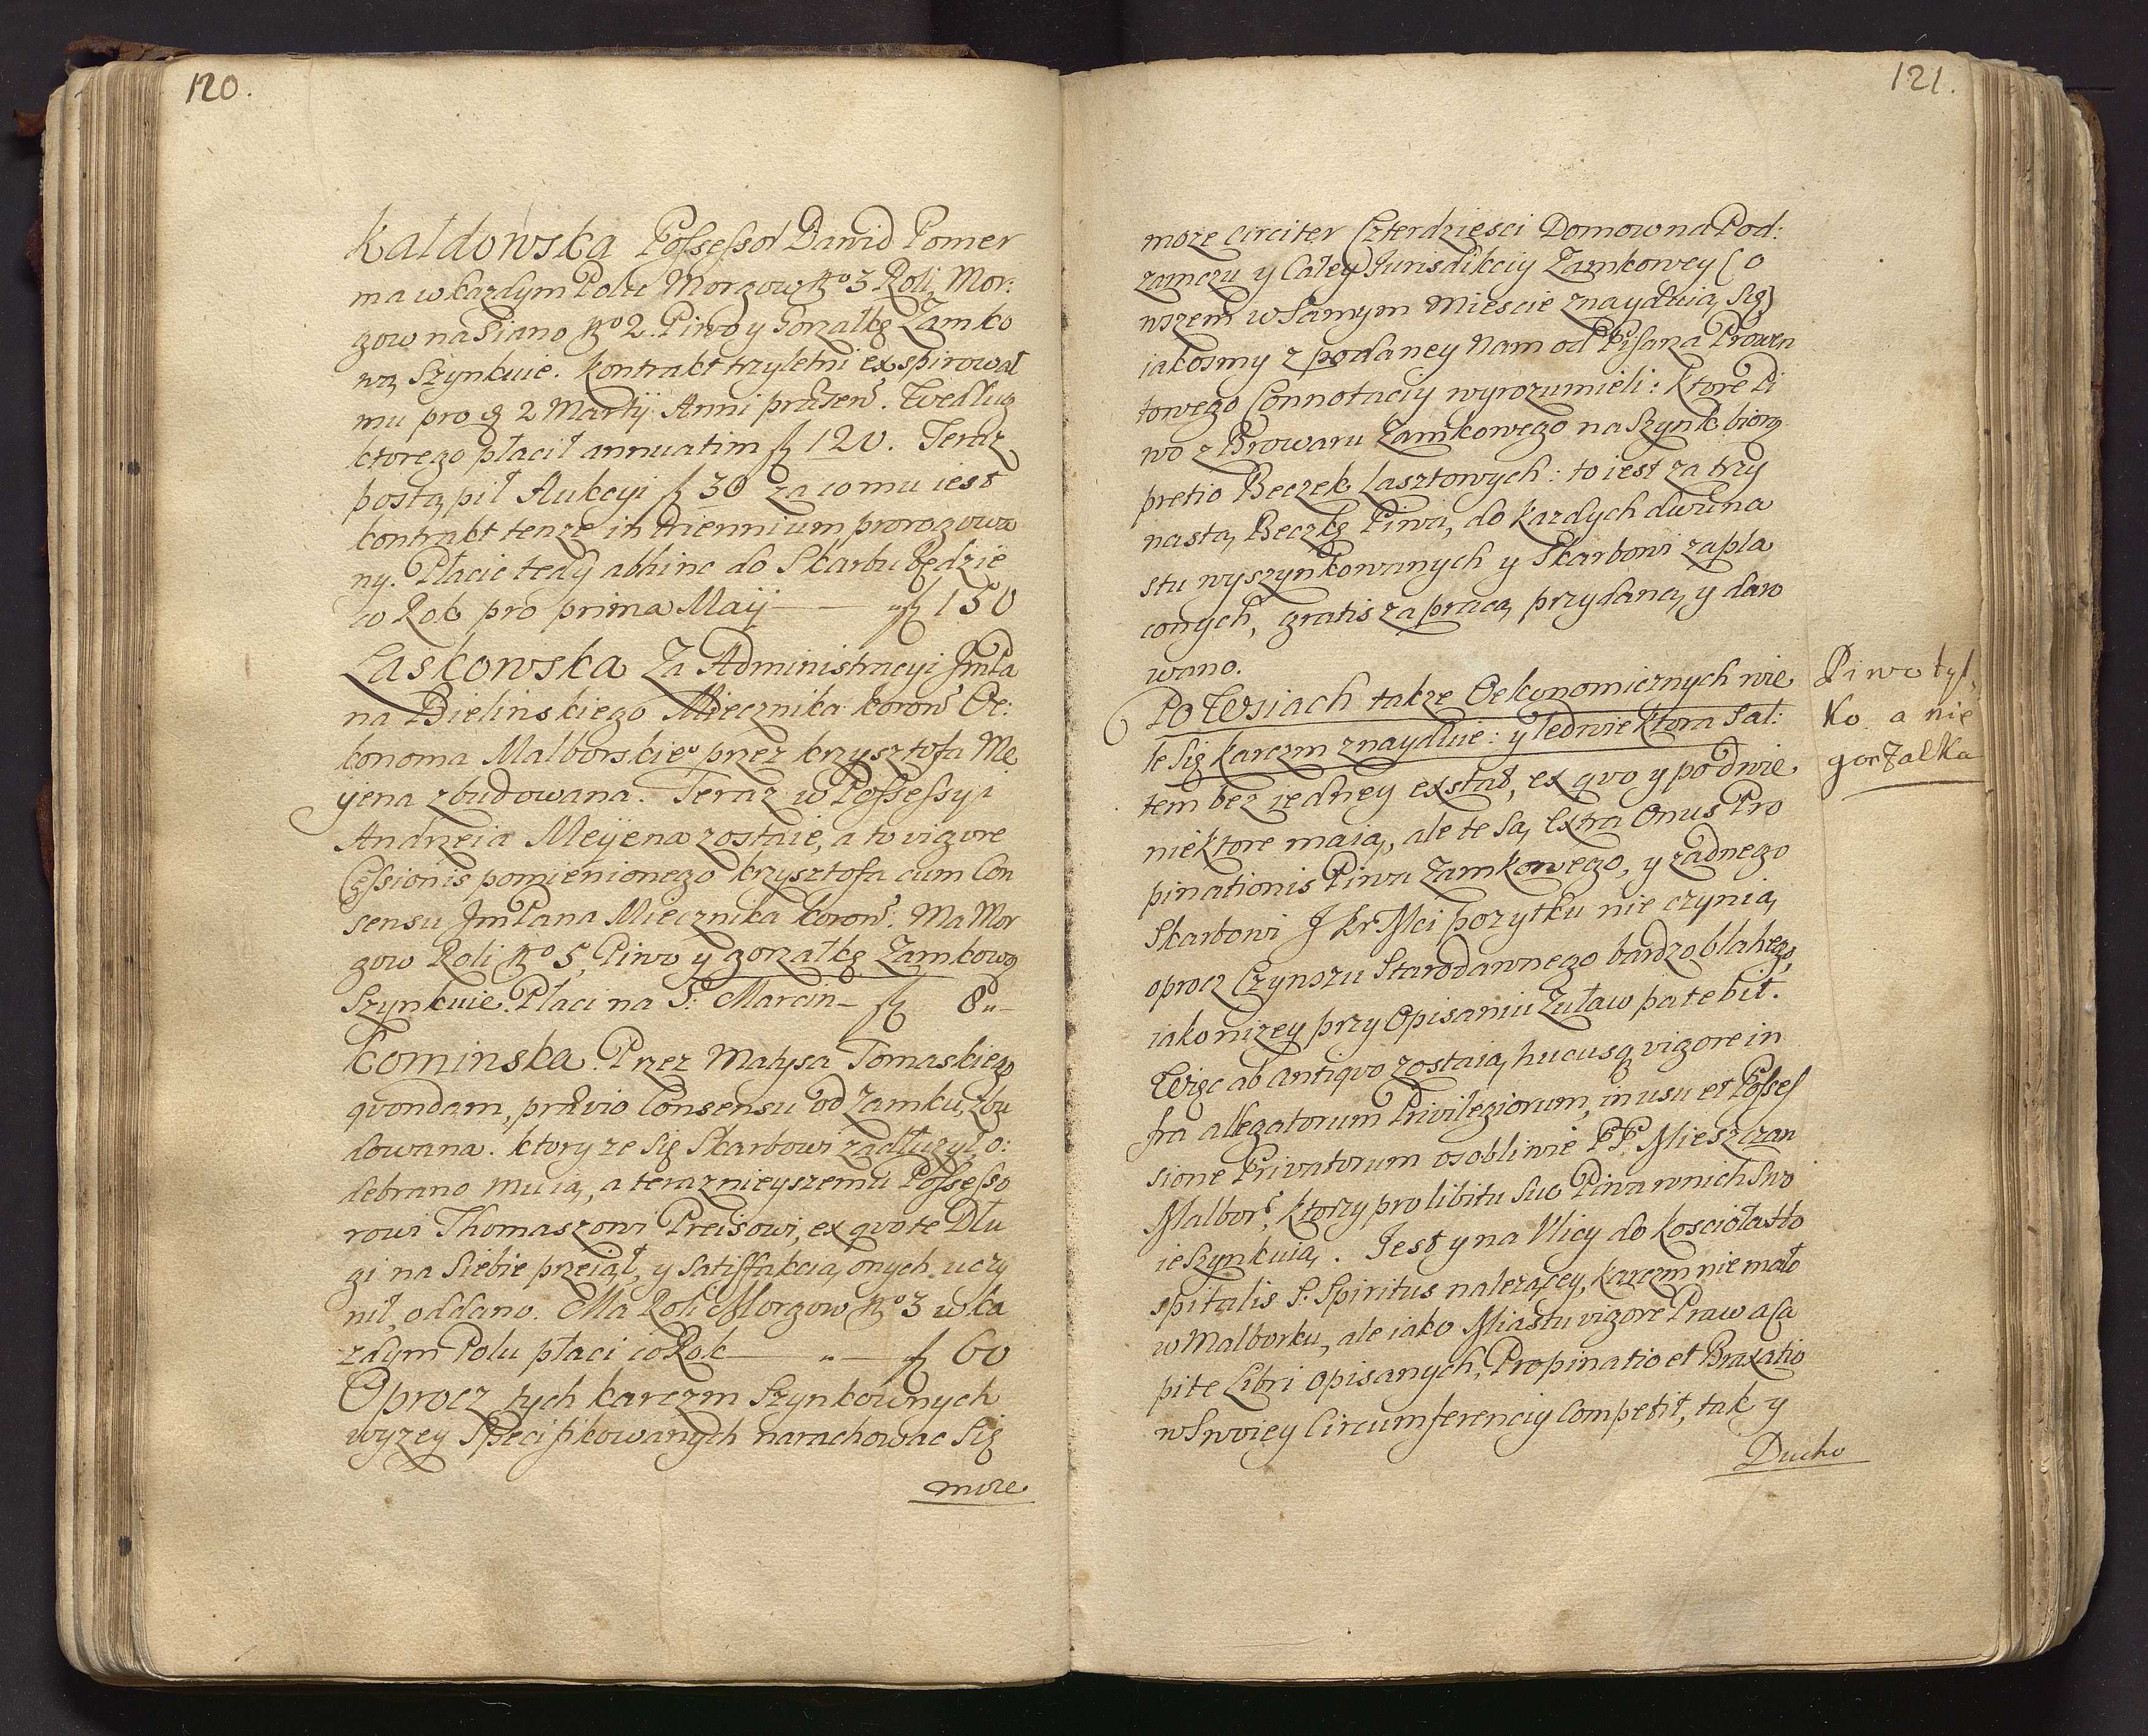 120.
Kałdowska Possessor Dawid Pomer
ma w każdym Polu Morgow No 3 Roli, Mor:
gow na Siano No 2. Piwo y Gorzałkę Zamko
wą Szynkuie. Kontrakt trzyletni exspirował
mu pro 2 Martij Anni præsen. Według
ktorego płacił annuatim fl 120. Teraz
postąpił Aukcyi fl 30 za co mu iest
kontrakt tenze in triennium prorogowa
ny. Płacic tedy abhinc do Skarbu będzie
co Rok pro prima Maij — — fl 150
Laskowska Za Administracyi JmPa
na Bielinskiego Miecznika koron Oe:
konoma Malborskieo przez krzysztofa Me
yena zbudowana. Teraz w Possessyi
Andrzeia Meyena zostaie, a to vigore
Cessionis pomienionego krzysztofa cum Con
sensu JmPana Miecznika koron: Ma Mor
gow Roli No 5, Piwo y gorzałkę Zamkową
Szynkuie. Płaci na S: Marcin — fl 8„—
Kominska. Przez Matysa Tomaskiego
qvondam, prævio Consensu od Zamku, zbu
dowana. ktory ze się Skarbowi zadłuzył, o:
debrano mu ią, a teraznieyszemu Possesso
rowi Thomaszowi Preisowi, ex qvo te Dłu
gi na Siebie przeiął, y satisfakcią onych uczy
nił, oddano. Ma Roli Morgow No 3 w ka
zdym Polu płaci co Rok — „ — fl 60
Oprocz tych karczm Szynkownych
wyzey Specifikowanych narachowac się
moze
121.
moze circiter Czterdziesci Domow na Pod:
zamczu y Całey Jurisdikciy Zamkowey (o
wszem w Samym Miescie znayduią się)
iakosmy z podaney nam od Pisarza Prowen
towego Connotaciy wyrozumieli: Ktore Pi
wo z Browaru Zamkowego na Szynk biorą
pretio Beczek Lasztowych: to iest za trzy
nastą Beczkę Piwa, do kazdych dwuna
stu wyszynkowanych y Skarbowi zapła
conych, gratis za pracą przydaną y daro
wano.
Po Wsiach takze Oekonomicznych wie
le się karczm znayduie: y ledwie ktora Sał:
tem bez iedney exstat, ex qvo y po dwie
niektore maią, ale te są extra Onus Pro
pinationis Piwa Zamkowego, y zadnego
Skarbowi J Kr Mci pozytku nie czynią,
oprocz Czynszu Starodawnego bardzo błahego,
iako nizey przy Opisaniu Zuław patebit.
Więc ab antiqvo zostaią hucusq vigore in
fra allegatorum Privilegiorum, in usu et Posses
sione Privatorum osobliwie PP. Mieszczan
Malbors, ktorzy pro libitu suo Piwa w nich swo
ie Szynkuią. Jest y na Ulicy do Koscioła Ho
spitalis S. Spiritus nalezącey, karczm nie mało
w Malborku, ale iako Miastu vigore Praw a Ca
pite Libri opisanych, Propinatio et Braxatio
w Swoiey Circumferenciy competit, tak y
Ducho
Piwo tyl,
ko a nie
gorzałka